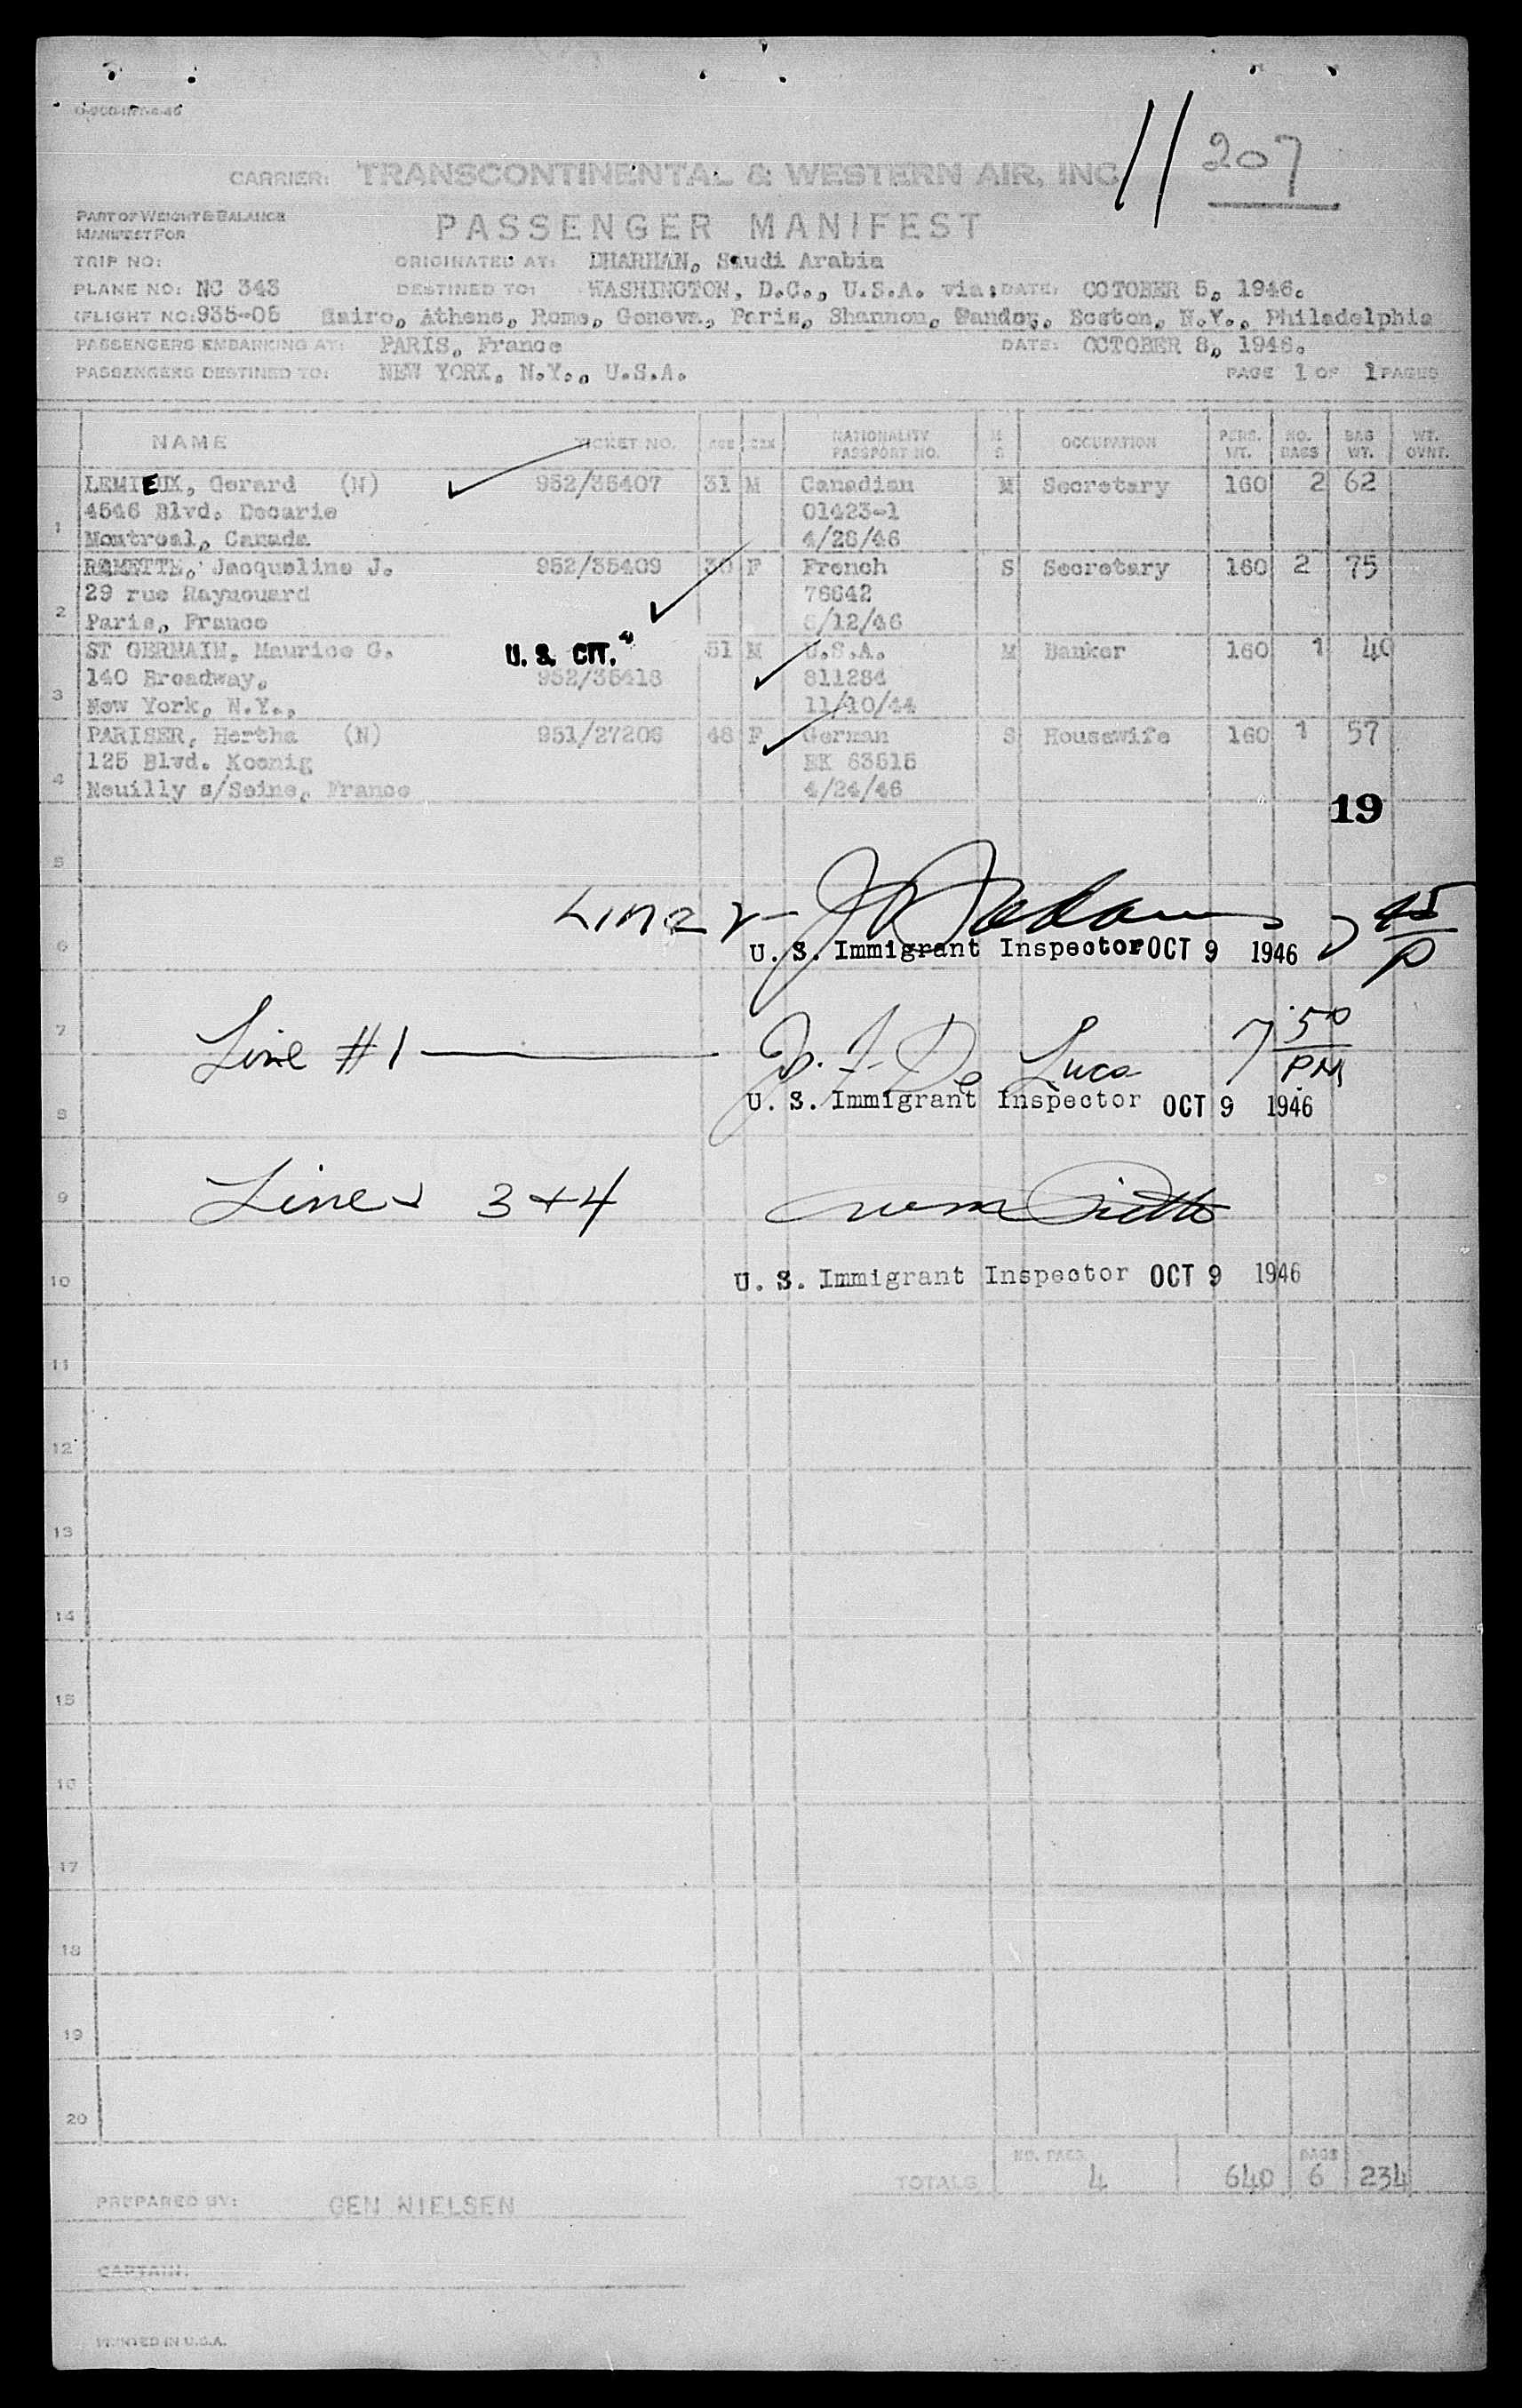 207
CARRIER: TRANSCONTINENTAL & WESTERN AIR, INC.
PART OF WEIGHT & BALANCE
MANIFEST FOR
PASSENGER MANIFEST
TRIP NO: ORIGINATED AT: DHARHAN, Saudi Arabia
PLANE NO: NC 343 DESTINED TO: WASHINGTON, D.C., U.S.A. via: DATE: OCTOBER 5, 1946.
FLIGHT NO: 935-05 Cairo, Athens, Rome, Geneva, Paris, Shannon, Gander, Boston, N.Y., Philadelphia
PASSENGERS EMBARKING AT: PARIS, France DATE: OCTOBER 8, 1946.
PASSENGERS DESTINED TO: NEW YORK, N.Y., U.S.A. PAGE 1 OF 1 PAGES
NAME TICKET NO. AGE SEX NATIONALITY PASSPORT NO. M S OCCUPATION PERS. WT. NO. BAGS BAG WT. WT. OVNT.
LEMIEUX, Gerard (N) 952/35407 31 M Canadian M Secretary 160 2 62
4546 Blvd. Decarie 01423-1
1 Montreal, Canada 4/26/46
RAMETTE, Jacqueline J. 952/35409 30 F French S Secretary 160 2 75
29 rue Raynouard 76642
2 Paris, France 6/12/46
ST GERMAIN, Maurice G. U. S. CIT. 51 M U.S.A. M Banker 160 1 40
140 Broadway, 952/35418 811284
3 New York, N.Y., 11/10/44
PARISER, Hertha (N) 951/27206 48 F German S Housewife 160 1 57
125 Blvd. Koenig EK 63515
4 Neuilly s/Seine, France 4/24/46
19
5
Line 2
6 U. S. Immigrant Inspector OCT 9 1946
7 Line #1 De Luca 7 50 PM
8 U. S. Immigrant Inspector OCT 9 1946
9 Lines 3+4
10 U. S. Immigrant Inspector OCT 9 1946
11
12
13
14
15
16
17
18
19
20
TOTALS NO. PASS. 4 640 BAGS 6 234
PREPARED BY: GEN NIELSEN
CAPTAIN:
PRINTED IN U.S.A.